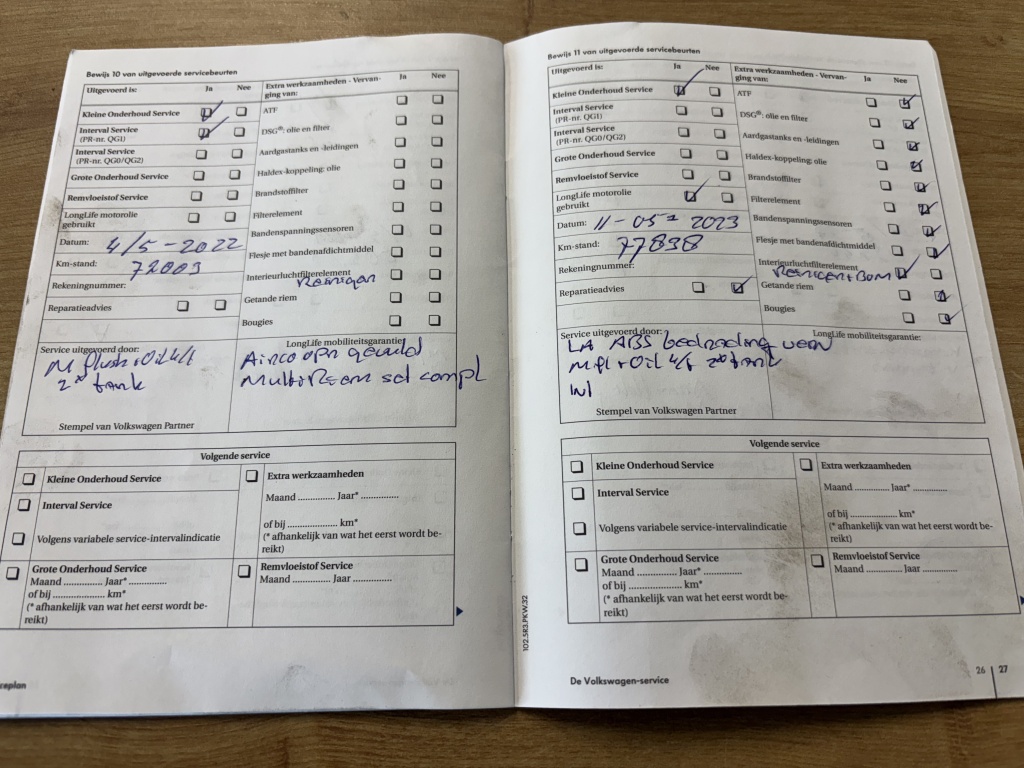 Bewijs 10 van uitgevoerde servicebeurten
Uitgevoerd is: Ja Nee
Kleine Onderhoud Service
Interval Service
(PR-nr. QG1)
Interval Service
(PR-nr. QG0/QG2)
Grote Onderhoud Service
Remvloeistof Service
LongLife motorolie
gebruikt
Datum: 4/5-2022
Km-stand: 72003
Rekeningnummer:
Reparatieadvies
Extra werkzaamheden - Vervan-
ging van: Ja Nee
ATF
DSG®: olie en filter
Aardgastanks en -leidingen
Haldex-koppeling: olie
Brandstoffilter
Filterelement
Bandenspanningssensoren
Flesje met bandenafdichtmiddel
Interieurluchtfilterelement
Reinigen
Getande riem
Bougies
Service uitgevoerd door:
M flush + Oil 4/1
2e tank
Stempel van Volkswagen Partner
LongLife mobiliteitsgarantie:
Airco opn gevuld
Multiriem set compl
Volgende service
Kleine Onderhoud Service
Interval Service
Volgens variabele service-intervalindicatie
Grote Onderhoud Service
Maand .............. Jaar* ..............
of bij .................. km*
(* afhankelijk van wat het eerst wordt be-
reikt)
Extra werkzaamheden
Maand .............. Jaar* ..............
of bij .................. km*
(* afhankelijk van wat het eerst wordt be-
reikt)
Remvloeistof Service
Maand .............. Jaar ..............
ceplan
Bewijs 11 van uitgevoerde servicebeurten
Uitgevoerd is: Ja Nee
Kleine Onderhoud Service
Interval Service
(PR-nr. QG1)
Interval Service
(PR-nr. QG0/QG2)
Grote Onderhoud Service
Remvloeistof Service
LongLife motorolie
gebruikt
Datum: 11-05- 2023
Km-stand: 77838
Rekeningnummer:
Reparatieadvies
Extra werkzaamheden - Vervan-
ging van: Ja Nee
ATF
DSG®: olie en filter
Aardgastanks en -leidingen
Haldex-koppeling: olie
Brandstoffilter
Filterelement
Bandenspanningssensoren
Flesje met bandenafdichtmiddel
Interieurluchtfilterelement
Reinigen + Bom
Getande riem
Bougies
Service uitgevoerd door:
LA ABS bedrading
M fl + Oil 4/1 2e tank
Stempel van Volkswagen Partner
LongLife mobiliteitsgarantie:
Volgende service
Kleine Onderhoud Service
Interval Service
Volgens variabele service-intervalindicatie
Grote Onderhoud Service
Maand .............. Jaar* ..............
of bij .................. km*
(* afhankelijk van wat het eerst wordt be-
reikt)
Extra werkzaamheden
Maand .............. Jaar* ..............
of bij .................. km*
(* afhankelijk van wat het eerst wordt be-
reikt)
Remvloeistof Service
Maand .............. Jaar ..............
102.5R3.PKW.32
De Volkswagen-service
26 | 27